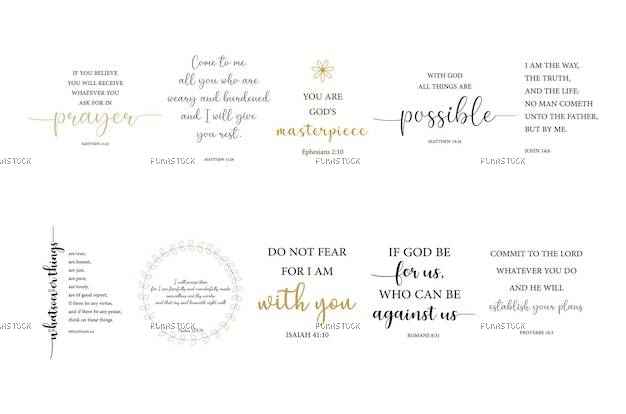 IF YOU BELIEVE
YOU WILL RECEIVE
WHATEVER YOU
ASK FOR IN
prayer
MATTHEW 21:22
Come to me
all you who are
weary and burdened
and I will give
you rest.
MATTHEW 11:28
YOU ARE
GOD'S
masterpiece
Ephesians 2:10
WITH GOD
ALL THINGS ARE
possible
MATTHEW 19:26
I AM THE WAY,
THE TRUTH,
AND THE LIFE:
NO MAN COMETH
UNTO THE FATHER,
BUT BY ME.
JOHN 14:6
FUNSTOCK
FUNSTOCK
FUNSTOCK
FUNSTOCK
whatsoever things
are true,
are honest,
are just,
are pure,
are lovely,
are of good report;
if there be any virtue,
and if there be any praise,
think on these things.
PHILIPPIANS 4:8
I will praise thee;
for I am fearfully and wonderfully made
marvellous are thy works;
and that my soul knoweth right well
DO NOT FEAR
FOR I AM
with you
ISAIAH 41:10
IF GOD BE
for us,
WHO CAN BE
against us
ROMANS 8:31
COMMIT TO THE LORD
WHATEVER YOU DO
AND HE WILL
establish your plans
PROVERBS 16:3
FUNSTOCK
FUNSTOCK
FUNSTOCK
FUNSTOCK